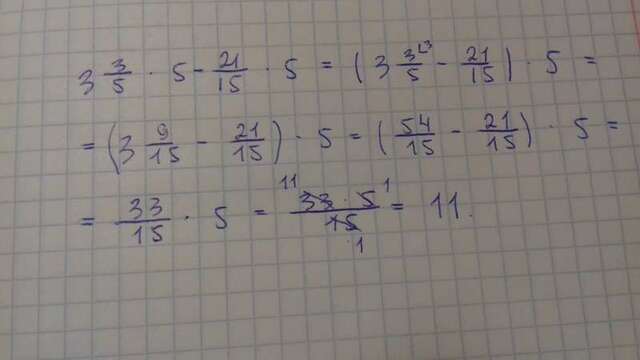 3 3/5 · 5 - 21/15 · 5 = (3 3/5 ^{\3} - 21/15) · 5 =
= (3 9/15 - 21/15) · 5 = (54/15 - 21/15) · 5 =
= 33/15 · 5 = 33 ^{11} · 5 ^{1} / 15 _{1} = 11.